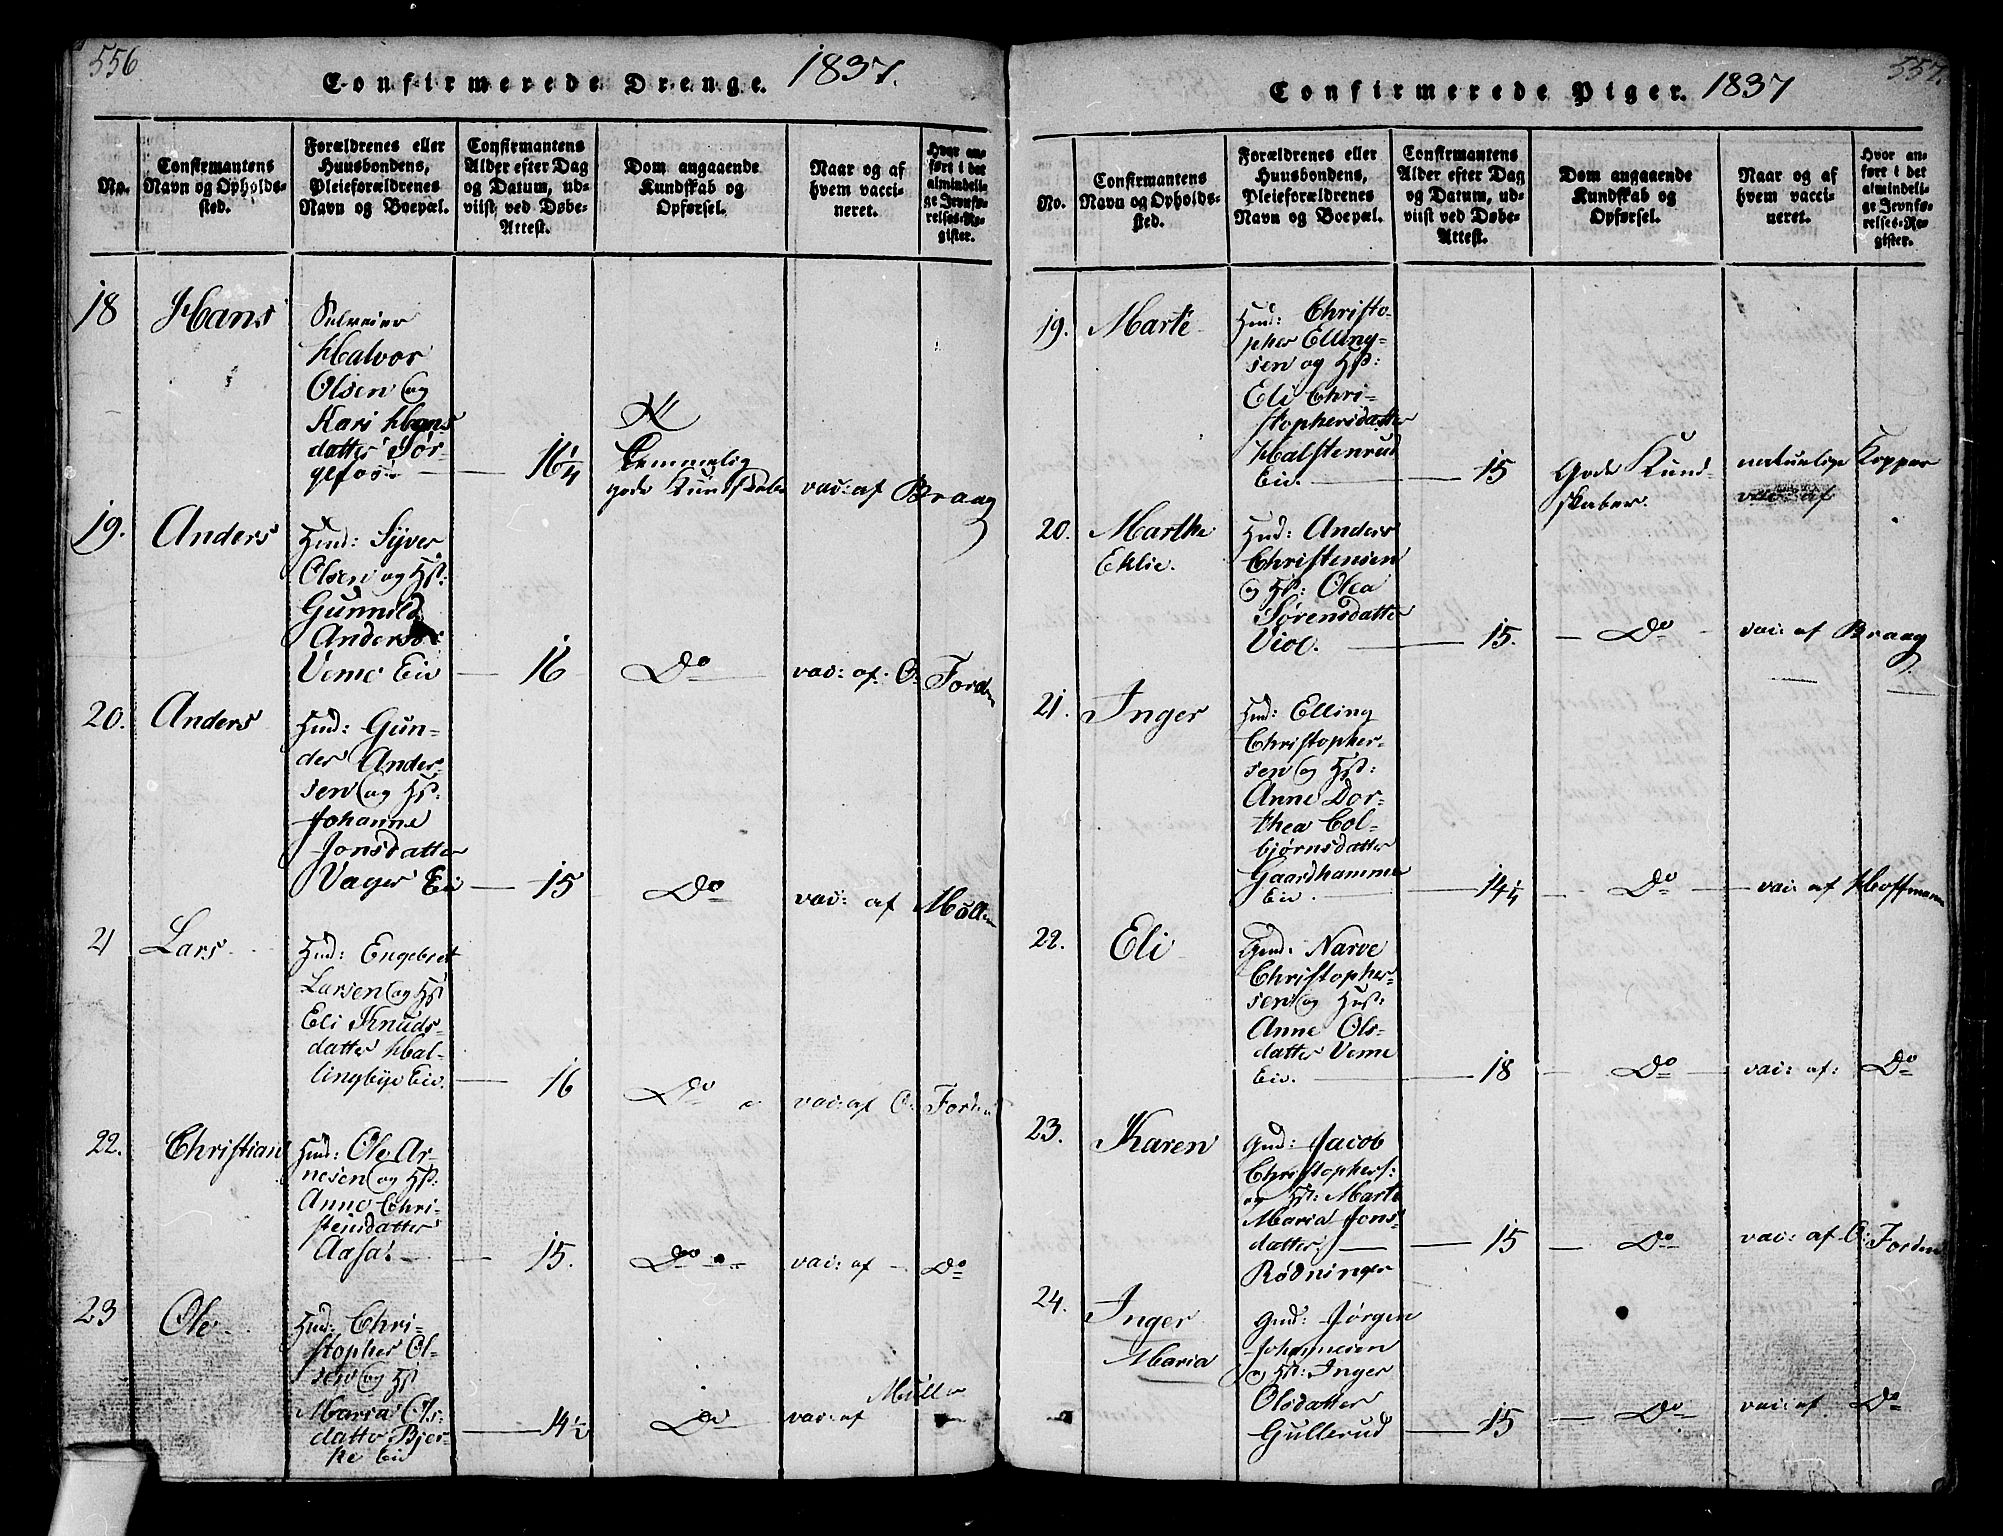 556.
Confirmerede Drenge. 1837.
No.
Confirmantens Navn og Opholdssted.
Forældrenes eller Huusbondens, Pleieforældrenes Navn og Boepæl.
Confirmantens Alder efter Dag og Datum, udviist ved Døbe-Attest.
Dom angaaende Kundskab og Opførsel.
Naar og af hvem vaccineret.
Hvor anført i det almindelige Jevnførelses-Register.
18
Hans
Selveier
Halvor
Olsen og
Kari Hans
datter Sør-
gefos.
16 1/4
Temmelig
gode Kundskaber
vac: af Braag
19.
Anders
Hmd: Syver
Olsen og Hst:
Gunnild
Andersd:
Veme Eie
16
Do
vac: af: O: Forden
20.
Anders
Hmd: Gun-
der Ander
sen og Hst:
Johanne
Jonsdatter
Vager Eie
15
Do
vac: af
21
Lars
Hmd: Engebret
Larsen og Hst
Eli Knuds-
datter Hal-
lingbye Eie.
16
Do
vac: af O: Forden
22.
Christian
Hmd: Ole Ar-
nesen og Hst:
Anne Chri-
stensdatter
Aasa
15.
Do
vac: af Do
23
Ole
Hmd: Chri-
stopher Ol-
sen og Hst
Maria Ols-
datter Bjer-
ke Eie
14 1/2
Do
vac: af Müller
557.
Confirmerede Piger. 1837
No.
Confirmantens Navn og Opholdssted.
Forældrenes eller Huusbondens, Pleieforældrenes Navn og Boepæl.
Confirmantens Alder efter Dag og Datum, udviist ved Døbe-Attest.
Dom angaaende Kundskab og Opførsel.
Naar og af hvem vaccineret.
Hvor anført i det almindelige Jevnførelses-Register.
19.
Marte
Hmd: Christo-
pher Elling-
sen og Hst:
Eli Chri-
stophersdatter
Halstenrud
Eie.
15
Gode Kund
skaber.
naturlige Kopper
vac: af
20.
Marthe
Eklie.
Hmd: Anders
Christensen
og Hst: Olea
Sørensdatter
Viol.
15.
Do
vac: af Braag
21.
Inger
Hmd: Elling
Christopher-
sen og Hst:
Anne Dor-
thea Col-
bjørnsdatter
Gaardhamme
Eie.
14 1/4
Do
vac: af Hoffmann
22.
Eli
Gmd: Narve
Christopher-
sen og Hust:
Anne Ols-
datter Veme
Eie.
18
Do
vac: af: Do
23.
Karen
Gmd: Jacob
Christophers:
og Hst: Marte
Maria Jons-
datter
Rødninger
15
Do
vac: af O: Forden
24.
Inger
Maria
Gmd: Jørgen
Johannesen
og Hst: Inger
Olsdatter
Gullerud
15
Do
vac: af. Do